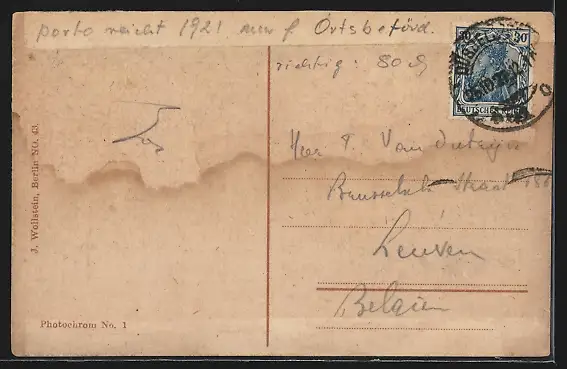 porto reicht 1921 nur f Ortsbeförd.
richtig: 80 ₰
30
DEUTSCHES REICH
Herr
Brusselsche Straat 156
Leuven
Belgien
J. Wollstein, Berlin NO. 43.
Photochrom No. 1